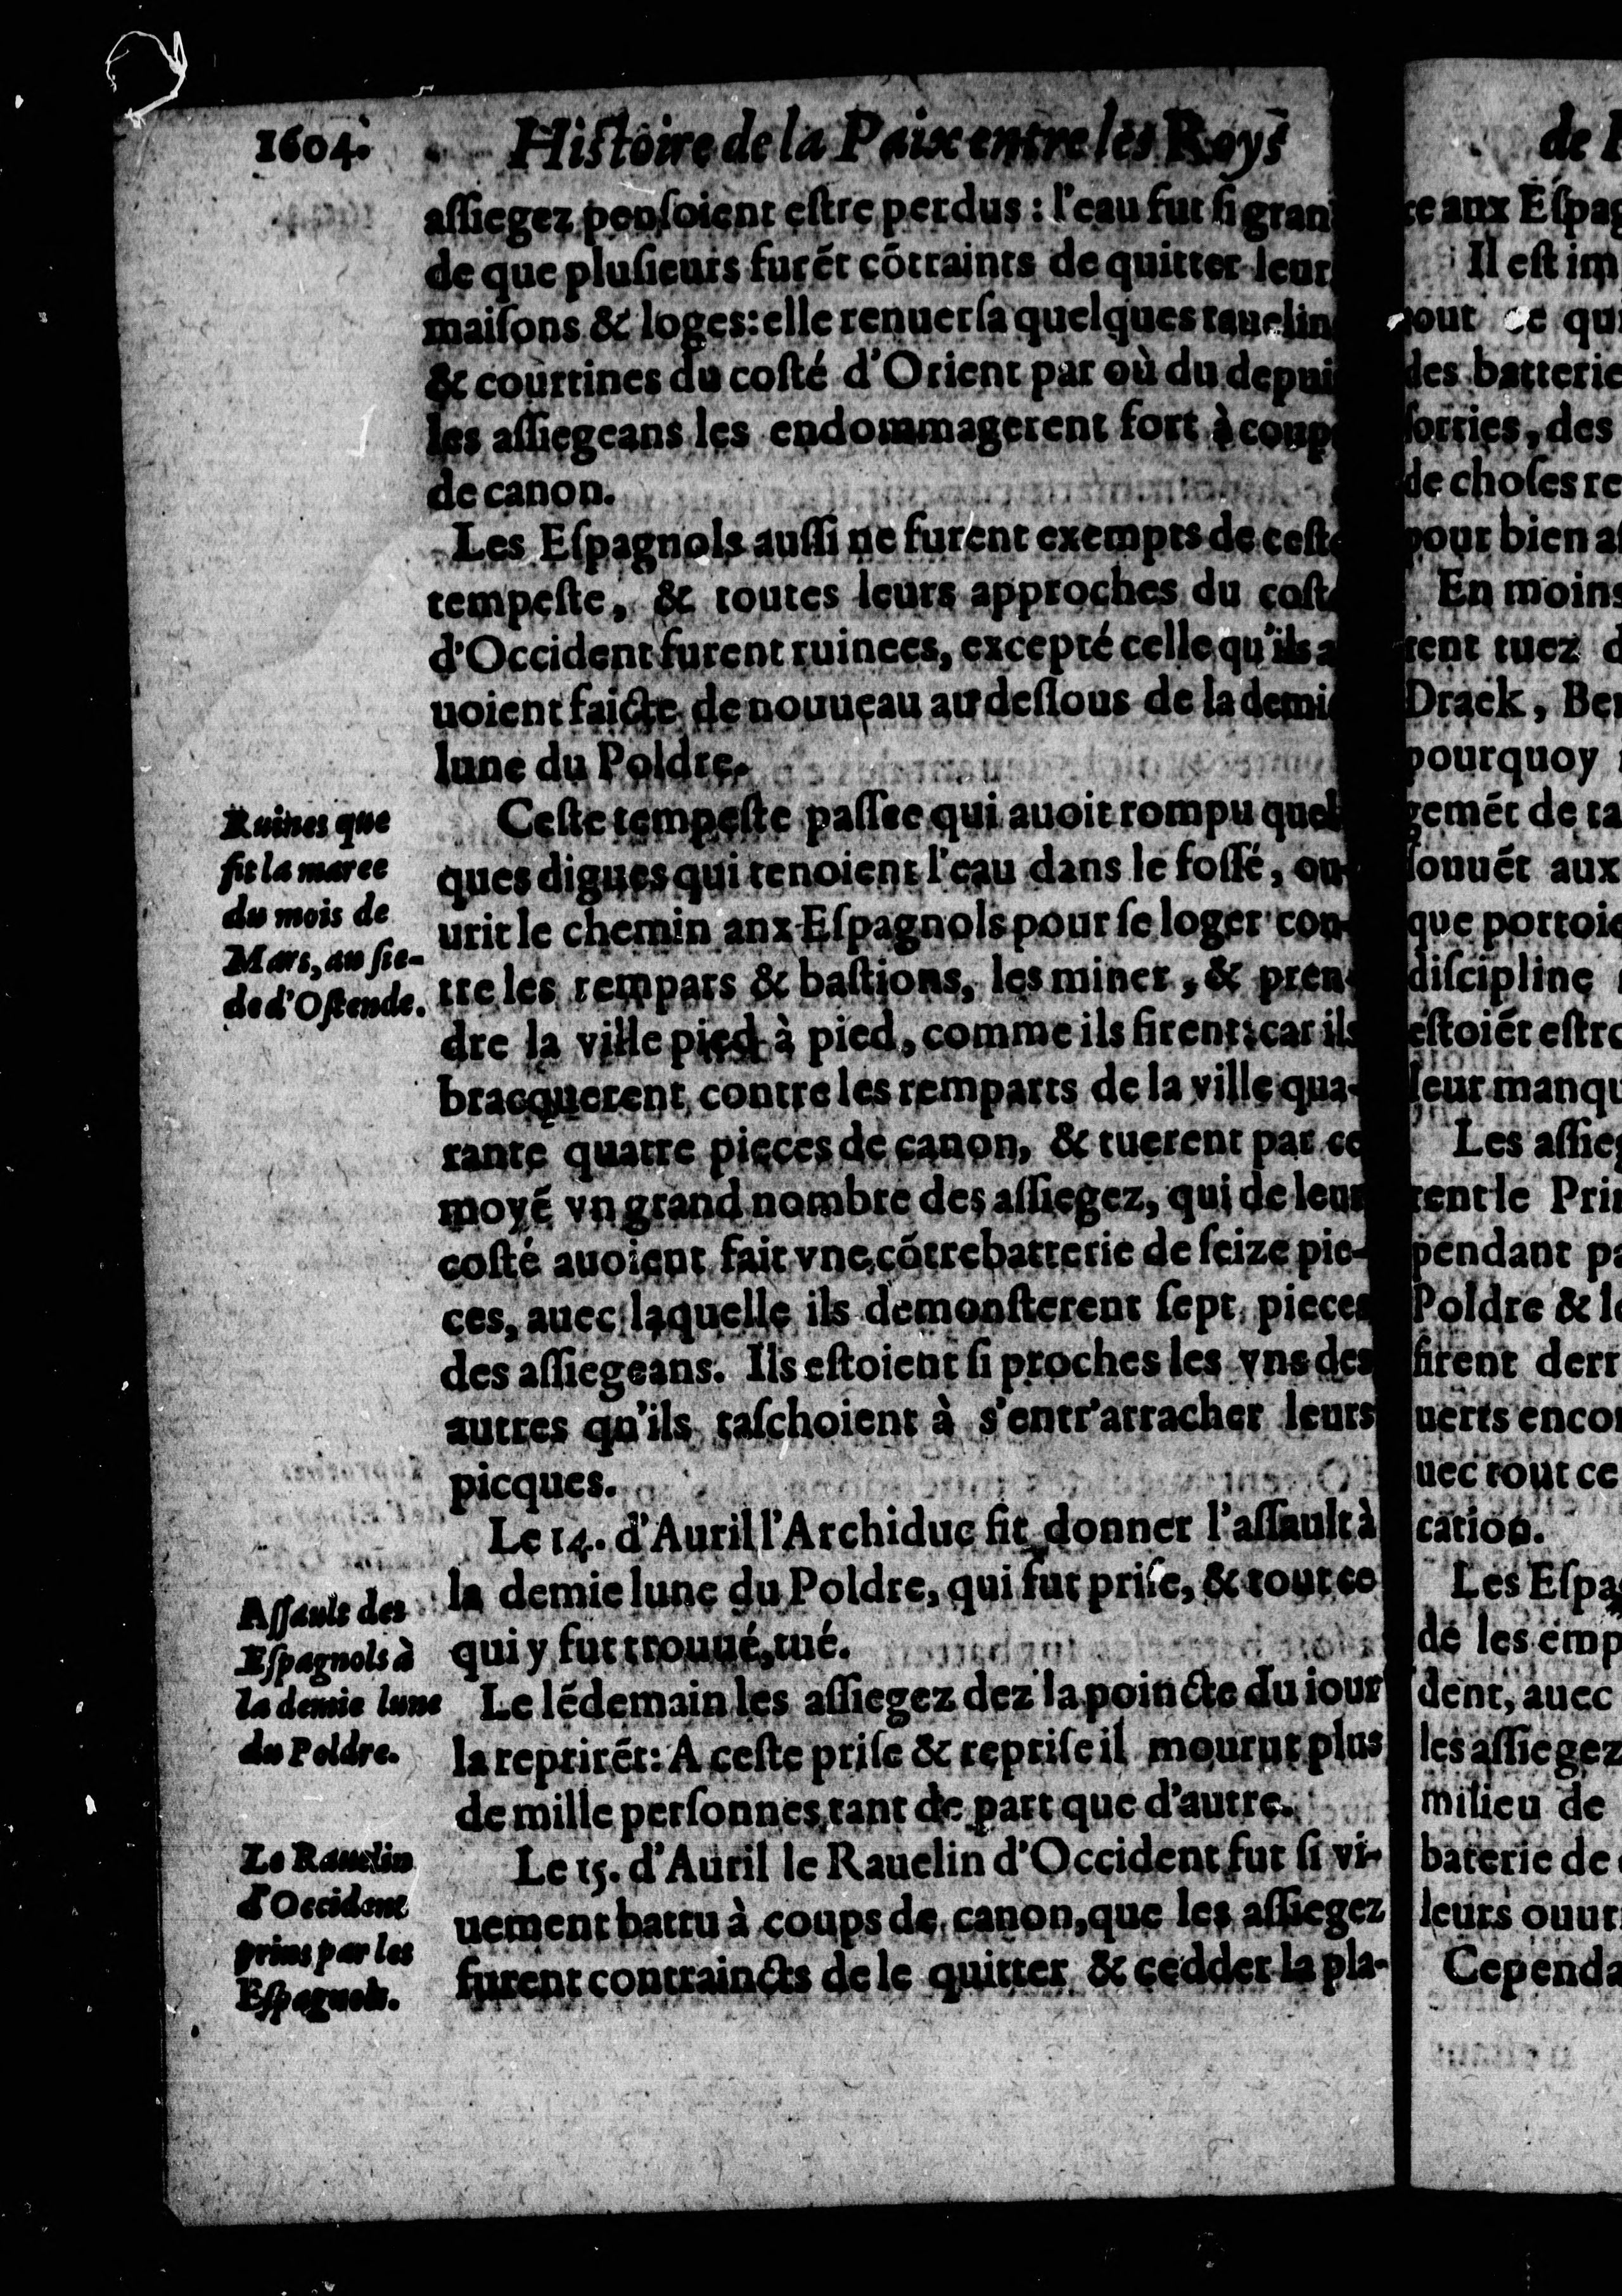 1604. Histoire de la Paix entre les Roys
assiegez pensoient estre perdus : l'eau fut si gran
de que plusieurs furẽt cõtraints de quitter leur
maisons & loges: elle renuersa quelques rauelin
& courtines du costé d'Orient par où du depui
les assiegeans les endommagerent fort à coup
de canon.
Les Espagnols aussi ne furent exempts de ceste
tempeste, & toutes leurs approches du cost
d'Occident furent ruinees, excepté celle qu'ils a
uoient faicte de nouueau au dessous de la demie
lune du Poldre.
Ceste tempeste passee qui auoit rompu quel
ques digues qui tenoient l'eau dans le fossé, ou-
urit le chemin anx Espagnols pour se loger con-
tre les rempars & bastions, les miner, & pren-
dre la ville pied à pied, comme ils firent: car ils
bracquerent contre les remparts de la ville qua-
rante quatre pieces de canon, & tuerent par ce
moyẽ vn grand nombre des assiegez, qui de leur
costé auoient fait vne cõtrebatterie de seize pie-
ces, auec laquelle ils demonsterent sept pieces
des assiegeans. Ils estoient si proches les vns des
autres qu'ils taschoient à s'entr'arracher leurs
picques.
Le 14. d'Auril l'Archiduc fit donner l'assault à
la demie lune du Poldre, qui fut prise, & tout ce
qui y fut trouué, tué.
Le lẽdemain les assiegez dez la poincte du iour
la reprirẽt: A ceste prise & reprise il mourut plus
de mille personnes, tant de part que d'autre.
Le 15. d'Auril le Rauelin d'Occident fut si vi-
uement battu à coups de canon, que les assiegez
furent contraincts de le quitter & cedder la pla-
Ruines que
fit la maree
du mois de
Mars, au sie-
de d'Ostende.
Assault des
Espagnols à
la demie lune
du Poldre.
Le Rauelin
d'Occident
prins par les
Espagnols.
de
ce aux Espag
Il est im
pout ce qu
des batterie
sorties, des
de choses re
pour bien a
En moins
rent tuez d
Drack, Be
pourquoy
gemẽt de ta
souuẽt aux
que portoie
discipline
estoiẽt estre
leur manqu
Les assieg
rent le Prin
pendant pa
Poldre & l
firent derr
uerts encor
uec tout ce
cation.
Les Espa
de les emp
dent, auec
les assiegez
milieu de
baterie de
leurs ouur
Cependa